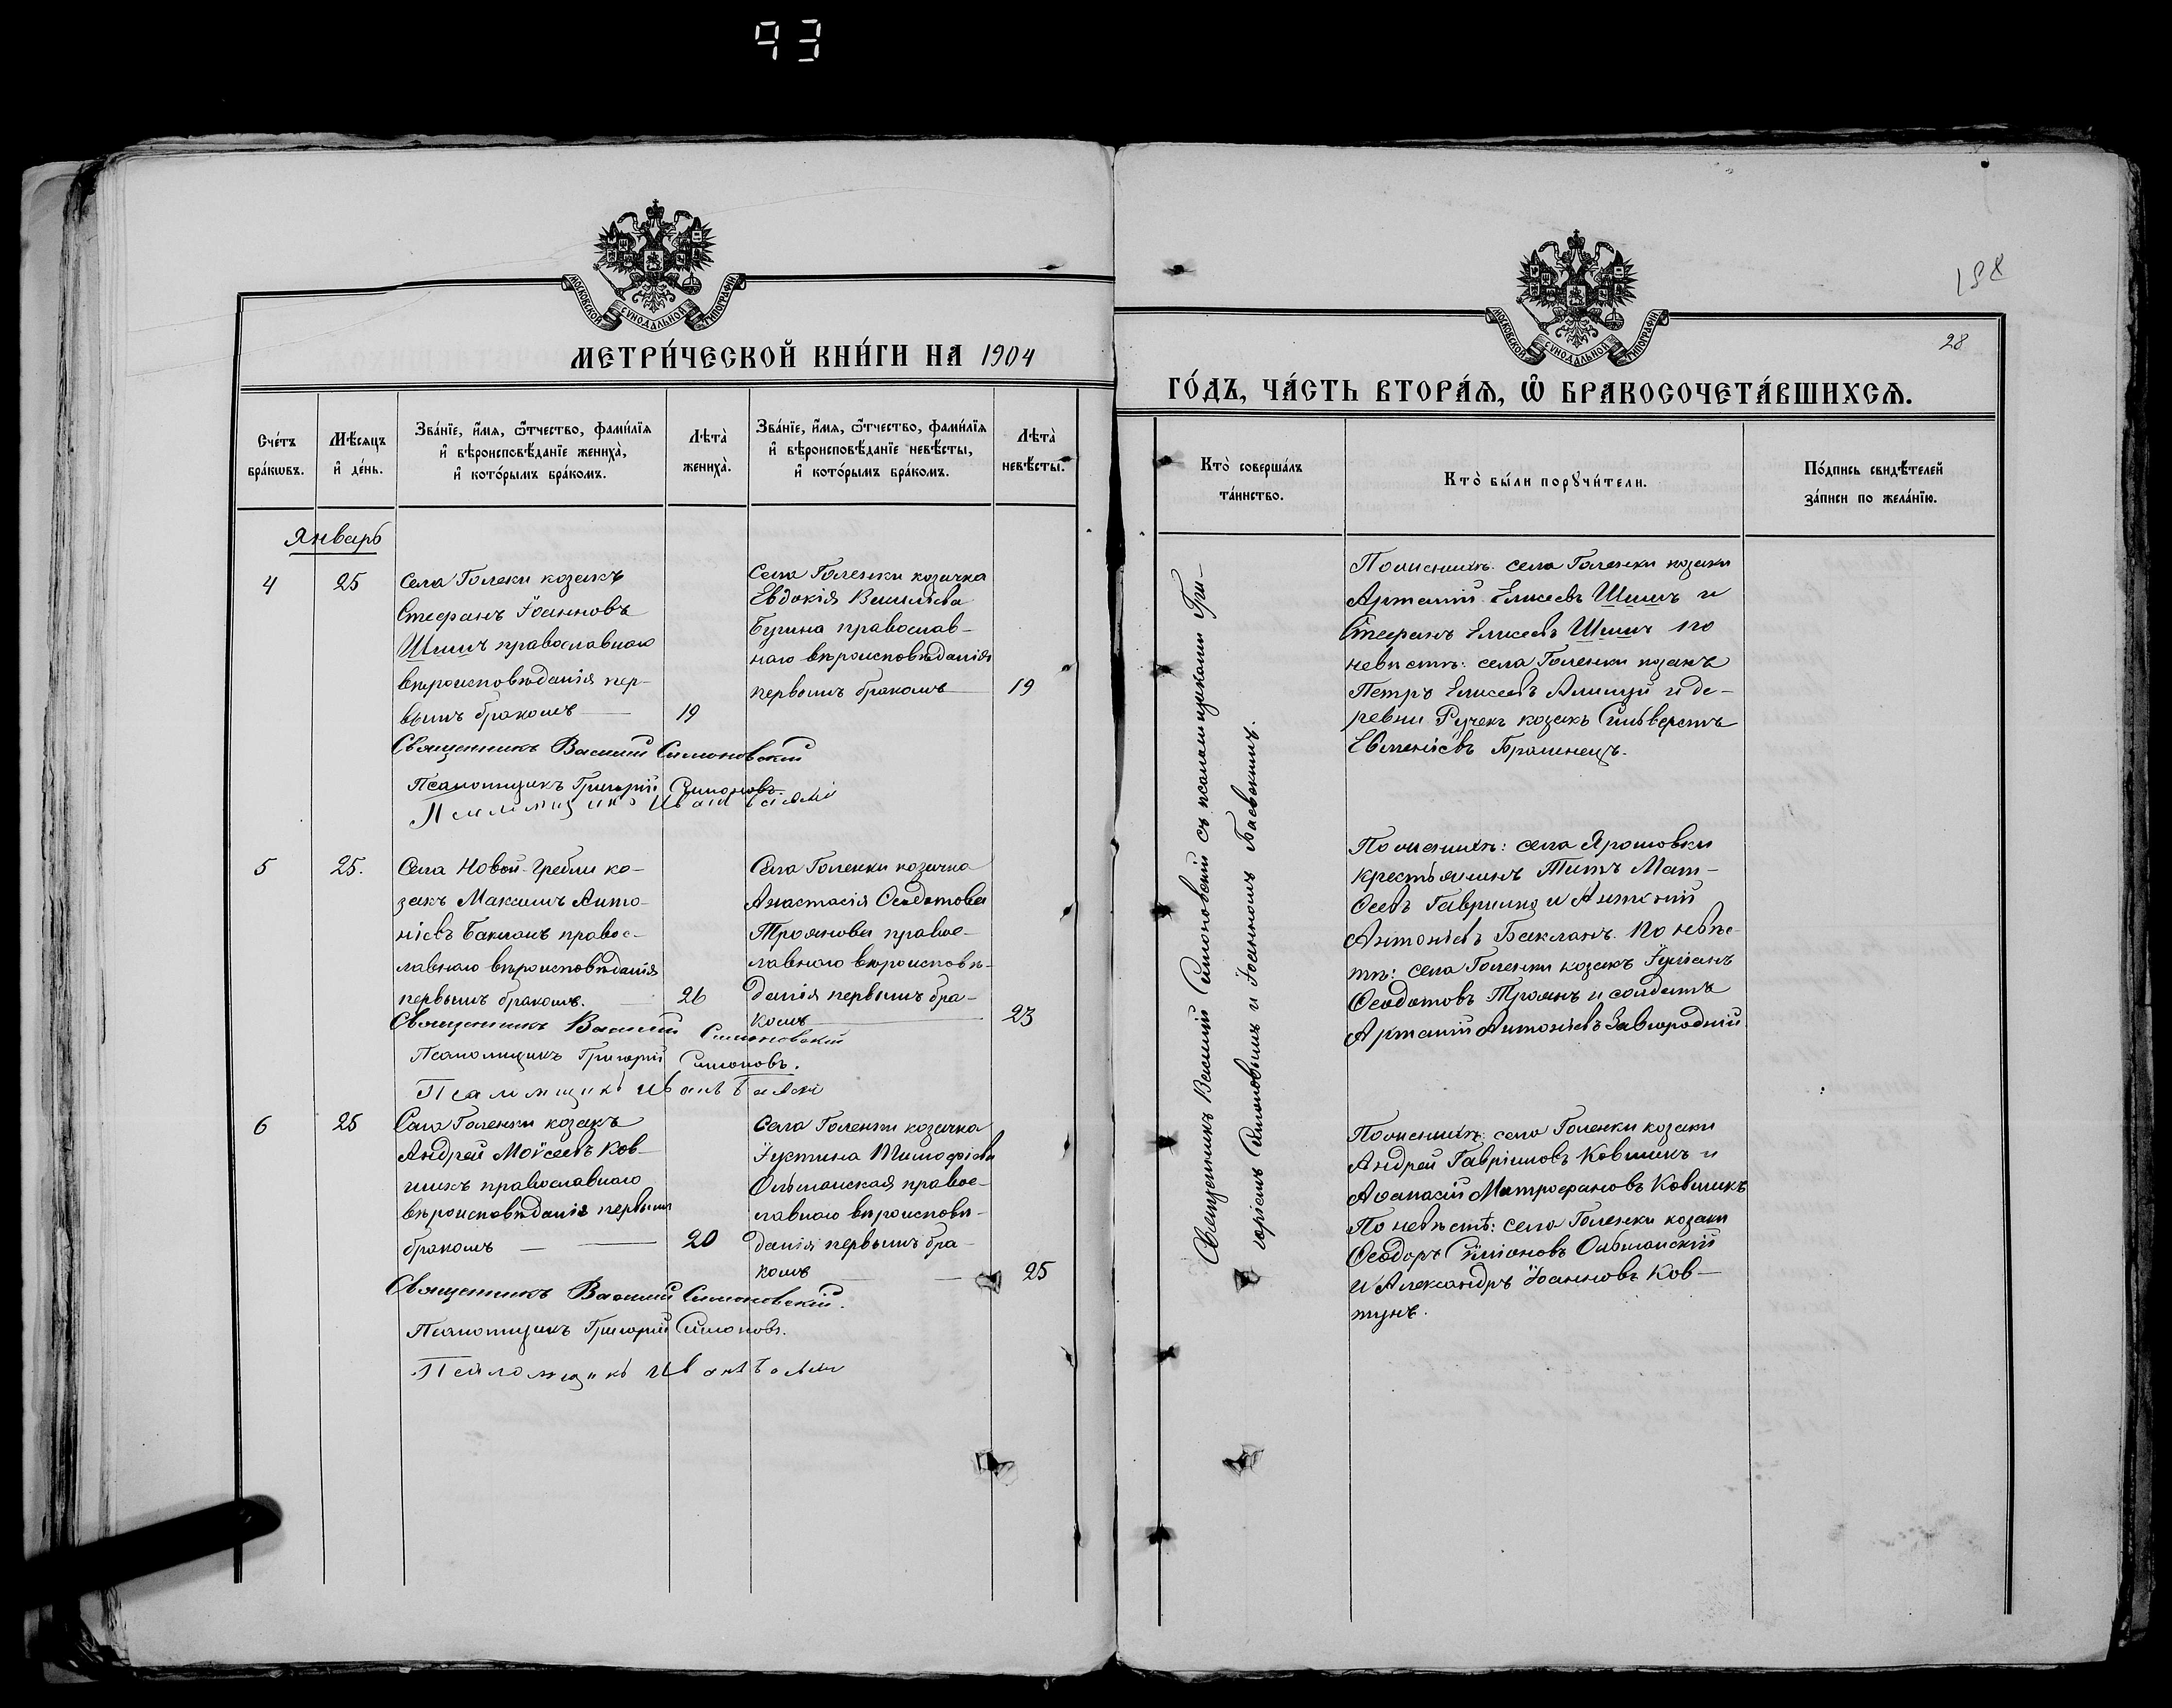 93
МОСКОВСКОЙ СУНОДАЛЬНОЙ ТИПОГРАФІИ.
МЕТРИ́ЧЕСКОЙ КНИ́ГИ НА 1904
Сче́тъ бра́кѡвъ.
Мѣ́сяцъ и҆ де́нь.
Зва́нїе, и҆́мя, ѻ҆́тчество, фами́лїя и҆ вѣроисповѣ́данїе жениха̀, и҆ кото́рымъ бра́комъ.
Лѣта̀ жениха̀.
Зва́нїе, и҆́мя, ѻ҆́тчество, фами́лїя и҆ вѣроисповѣ́данїе невѣ́сты, и҆ кото́рымъ бра́комъ.
Лѣта̀ невѣ́сты.
Январь
4
25
Села Голенки козакъ
Стефанъ Іоанновъ
Шишъ православнаго
вѣроисповѣданія пер-
вымъ бракомъ
19
Села Голенки козачка
Евдокія
православ-
наго вѣроисповѣданія
первымъ бракомъ
19
Священникъ Василій Симоновскій
Псаломщикъ Григорій Симоновъ.
Псаломщикъ Иванъ
5
25.
Села Новой-Гребли ко-
закъ Максимъ Анто-
ніевъ Бакланъ правос-
лавнаго вѣроисповѣданія
первымъ бракомъ.
26
Села Голенки козачка
Анастасія Ѳеодотова
Троянова правос-
лавнаго вѣроисповѣ-
данія первымъ бра-
комъ
23
Священникъ Василій Симоновскій
Псаломщикъ Григорій Симоновъ.
Псаломщикъ Иванъ
6
25
Села Голенки козакъ
Андрей Моѵсеевъ Ков-
шикъ православнаго
вѣроисповѣданія первымъ
бракомъ
20
Села Голенки козачка
Іустина Тимофіева
Ольшанская правос-
лавнаго вѣроисповѣ-
данія первымъ бра-
комъ
25
Священникъ Василій Симоновскій.
Псаломщикъ Григорій Симоновъ.
Псаломщикъ Иванъ
198
28
МОСКОВСКОЙ СУНОДАЛЬНОЙ ТИПОГРАФІИ.
ГО́ДЪ, ЧА́СТЬ ВТОРА́Ѧ, Ѡ҆ БРАКОСОЧЕТА́ВШИХСѦ.
Кто̀ соверша́лъ та́инство.
Кто̀ бы́ли порꙋчи́тели.
По́дпись свидѣ́телей за́писи по жела́нїю.
Священникъ Василій Симоновскій съ псаломщиками Гри-
горіемъ Симоновымъ и Іоанномъ Баевскимъ.
По женихѣ: села Голенки козаки
Артемій Елисеевъ Шишъ и
Стефанъ Елисеевъ Шишъ по
невѣстѣ: села Голенки козакъ
Петръ Елисеевъ и де-
ревни Ручекъ козакъ Сильверстъ
Евменіевъ
По женихѣ: села Ярошовки
крестьянинъ Титъ Мат-
ѳеевъ и
Антоніевъ Бакланъ. По невѣс-
тѣ: села Голенки козакъ Іуліанъ
Ѳеодотовъ Троянъ и солдатъ
Артемій Антоніевъ Завгородній
По женихѣ: села Голенки козаки
Андрей Гавріиловъ Ковшикъ и
Аѳанасій Митрофановъ Ковшикъ
По невѣстѣ: села Голенки козаки
Ѳеодоръ Сѵмоновъ Ольшанскій
и Александръ Іоанновъ Ков-
тунъ.